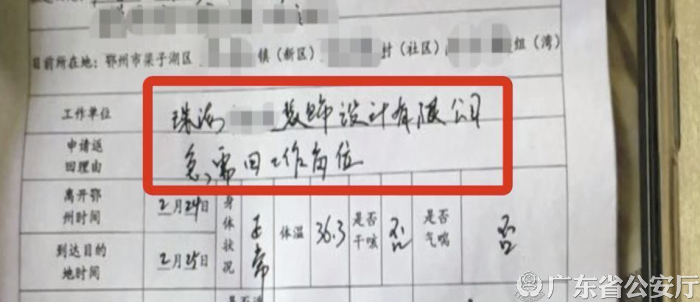 目前所在地：鄂州市梁子湖区 镇（新区） 村（社区） 组（湾）
工作单位 珠海 装饰设计有限公司
申请返回理由 急需回工作岗位
离开鄂州时间 2月24日 身体状况 正常 体温 36.3 是否干咳 否 是否气喘 否
到达目的地时间 2月25日
广东省公安厅